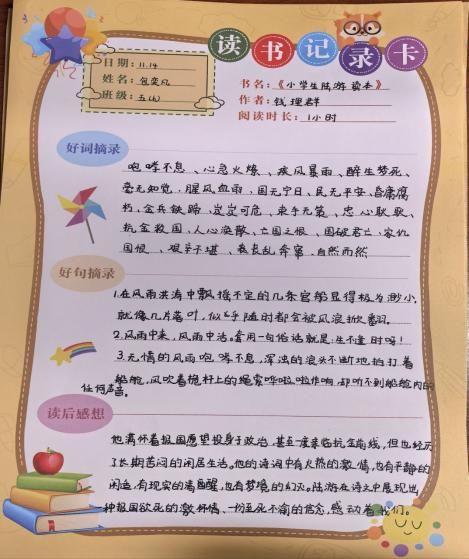 读书记录卡
日期：11.14
姓名：包奕凡
班级：五(6)
书名：《小学生陆游读本》
作者：钱理群
阅读时长：1小时
好词摘录
咆哮不息、心急火燎、疾风暴雨、醉生梦死、
毫无知觉、腥风血雨、国无宁日、民无平安、昏庸腐
朽、金兵铁蹄、岌岌可危、束手无策、忠心耿耿、
抗金救国、人心涣散、亡国之恨、国破君亡、家仇
国恨、艰辛不堪、自然而然
好句摘录
1.在风雨洪涛中飘摇不定的几条官船显得极为渺小，
就像几片落叶，似乎随时都会被风浪掀翻。
2.风雨中来，风雨中活。套用一句俗话就是：生不逢时呀！
3.无情的风雨咆哮不息，浑浊的浪头不断地拍打着
船舷，风吹着桅杆上的绳索哗啦啦作响，却听不到船舱内的
任何声音。
读后感想
他满怀着报国愿望投身于政治，甚至一度亲临抗金前线，但也经历
了长期苦闷的闲居生活。他的诗词中有火热的激情，也有平静的
闲适，有现实的清醒，也有梦境的幻灭。陆游在诗文中展现出
种报国欲死的激情，一份至死不渝的信念，感动着我们。